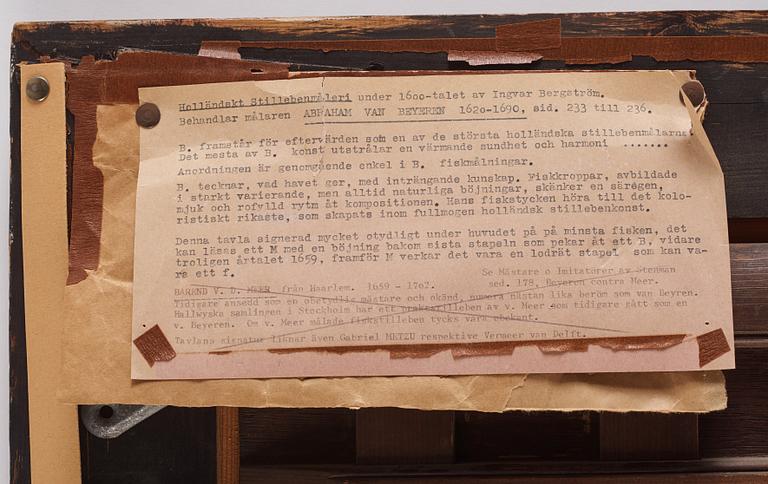 Holländskt Stillebenmåleri under 1600-talet av Ingvar Bergström.
Behandlar målaren ABRAHAM VAN BEYEREN 1620-1690, sid. 233 till 236.
B. framstår för eftervärden som en av de största holländska stillebenmålarna.
Det mesta av B. konst utstrålar en värmande sundhet och harmoni .......
Anordningen är genomgående enkel i B. fiskmålningar.
B. tecknar, vad havet ger, med inträngande kunskap. Fiskkroppar, avbildade
i starkt varierande, men alltid naturliga böjningar, skänker en säregen,
mjuk och rofylld rytm åt kompositionen. Hans fiskstycken höra till det kolo-
ristiskt rikaste, som skapats inom fullmogen holländsk stillebenkonst.
Denna tavla signerad mycket otydligt under huvudet på på minsta fisken, det
kan läsas ett M med en böjning bakom sista stapeln som pekar åt ett B, vidare
troligen årtalet 1659, framför M verkar det vara en lodrät stapel som kan va-
ra ett f.
Se Mästare o Imitatörer av Stenman
BAREND V. D. MEER från Haarlem. 1659 - 1702. sed. 178, Beyeren contra Meer.
Tidigare ansedd som en obetydlig mästare och okänd, numera nästan lika beröm som van Beyren.
Hallwyska samlingen i Stockholm har ett praktstilleben av v. Meer som tidigare gått som en
v. Beyeren. Om v. Meer målade fiskstilleben tycks vara obekant.
Tavlans signatur liknar även Gabriel METZU respektive Vermeer van Delft.